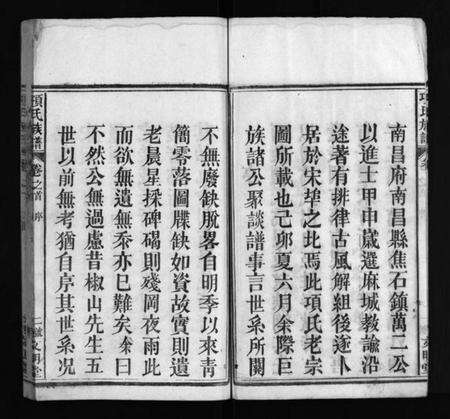 南昌府南昌縣蕉石鎮萬二公
以進士甲申歲選麻城教諭沿
途著有排律古風解組後遂卜
居於宋埠之北焉此項氏老宗
圖所載也己卯夏六月余際巨
族諸公聚談譜事言世系所關
不無廢缺脫畧自明季以來青
簡零落圖牒缺如資故實則遺
老晨星採碑碣則殘岡夜雨此
而欲無遺無忝亦已難矣余曰
不然公無過慮昔椒山先生五
世以前無考猶自序其世系況
項氏族譜
卷之首
序
文明堂